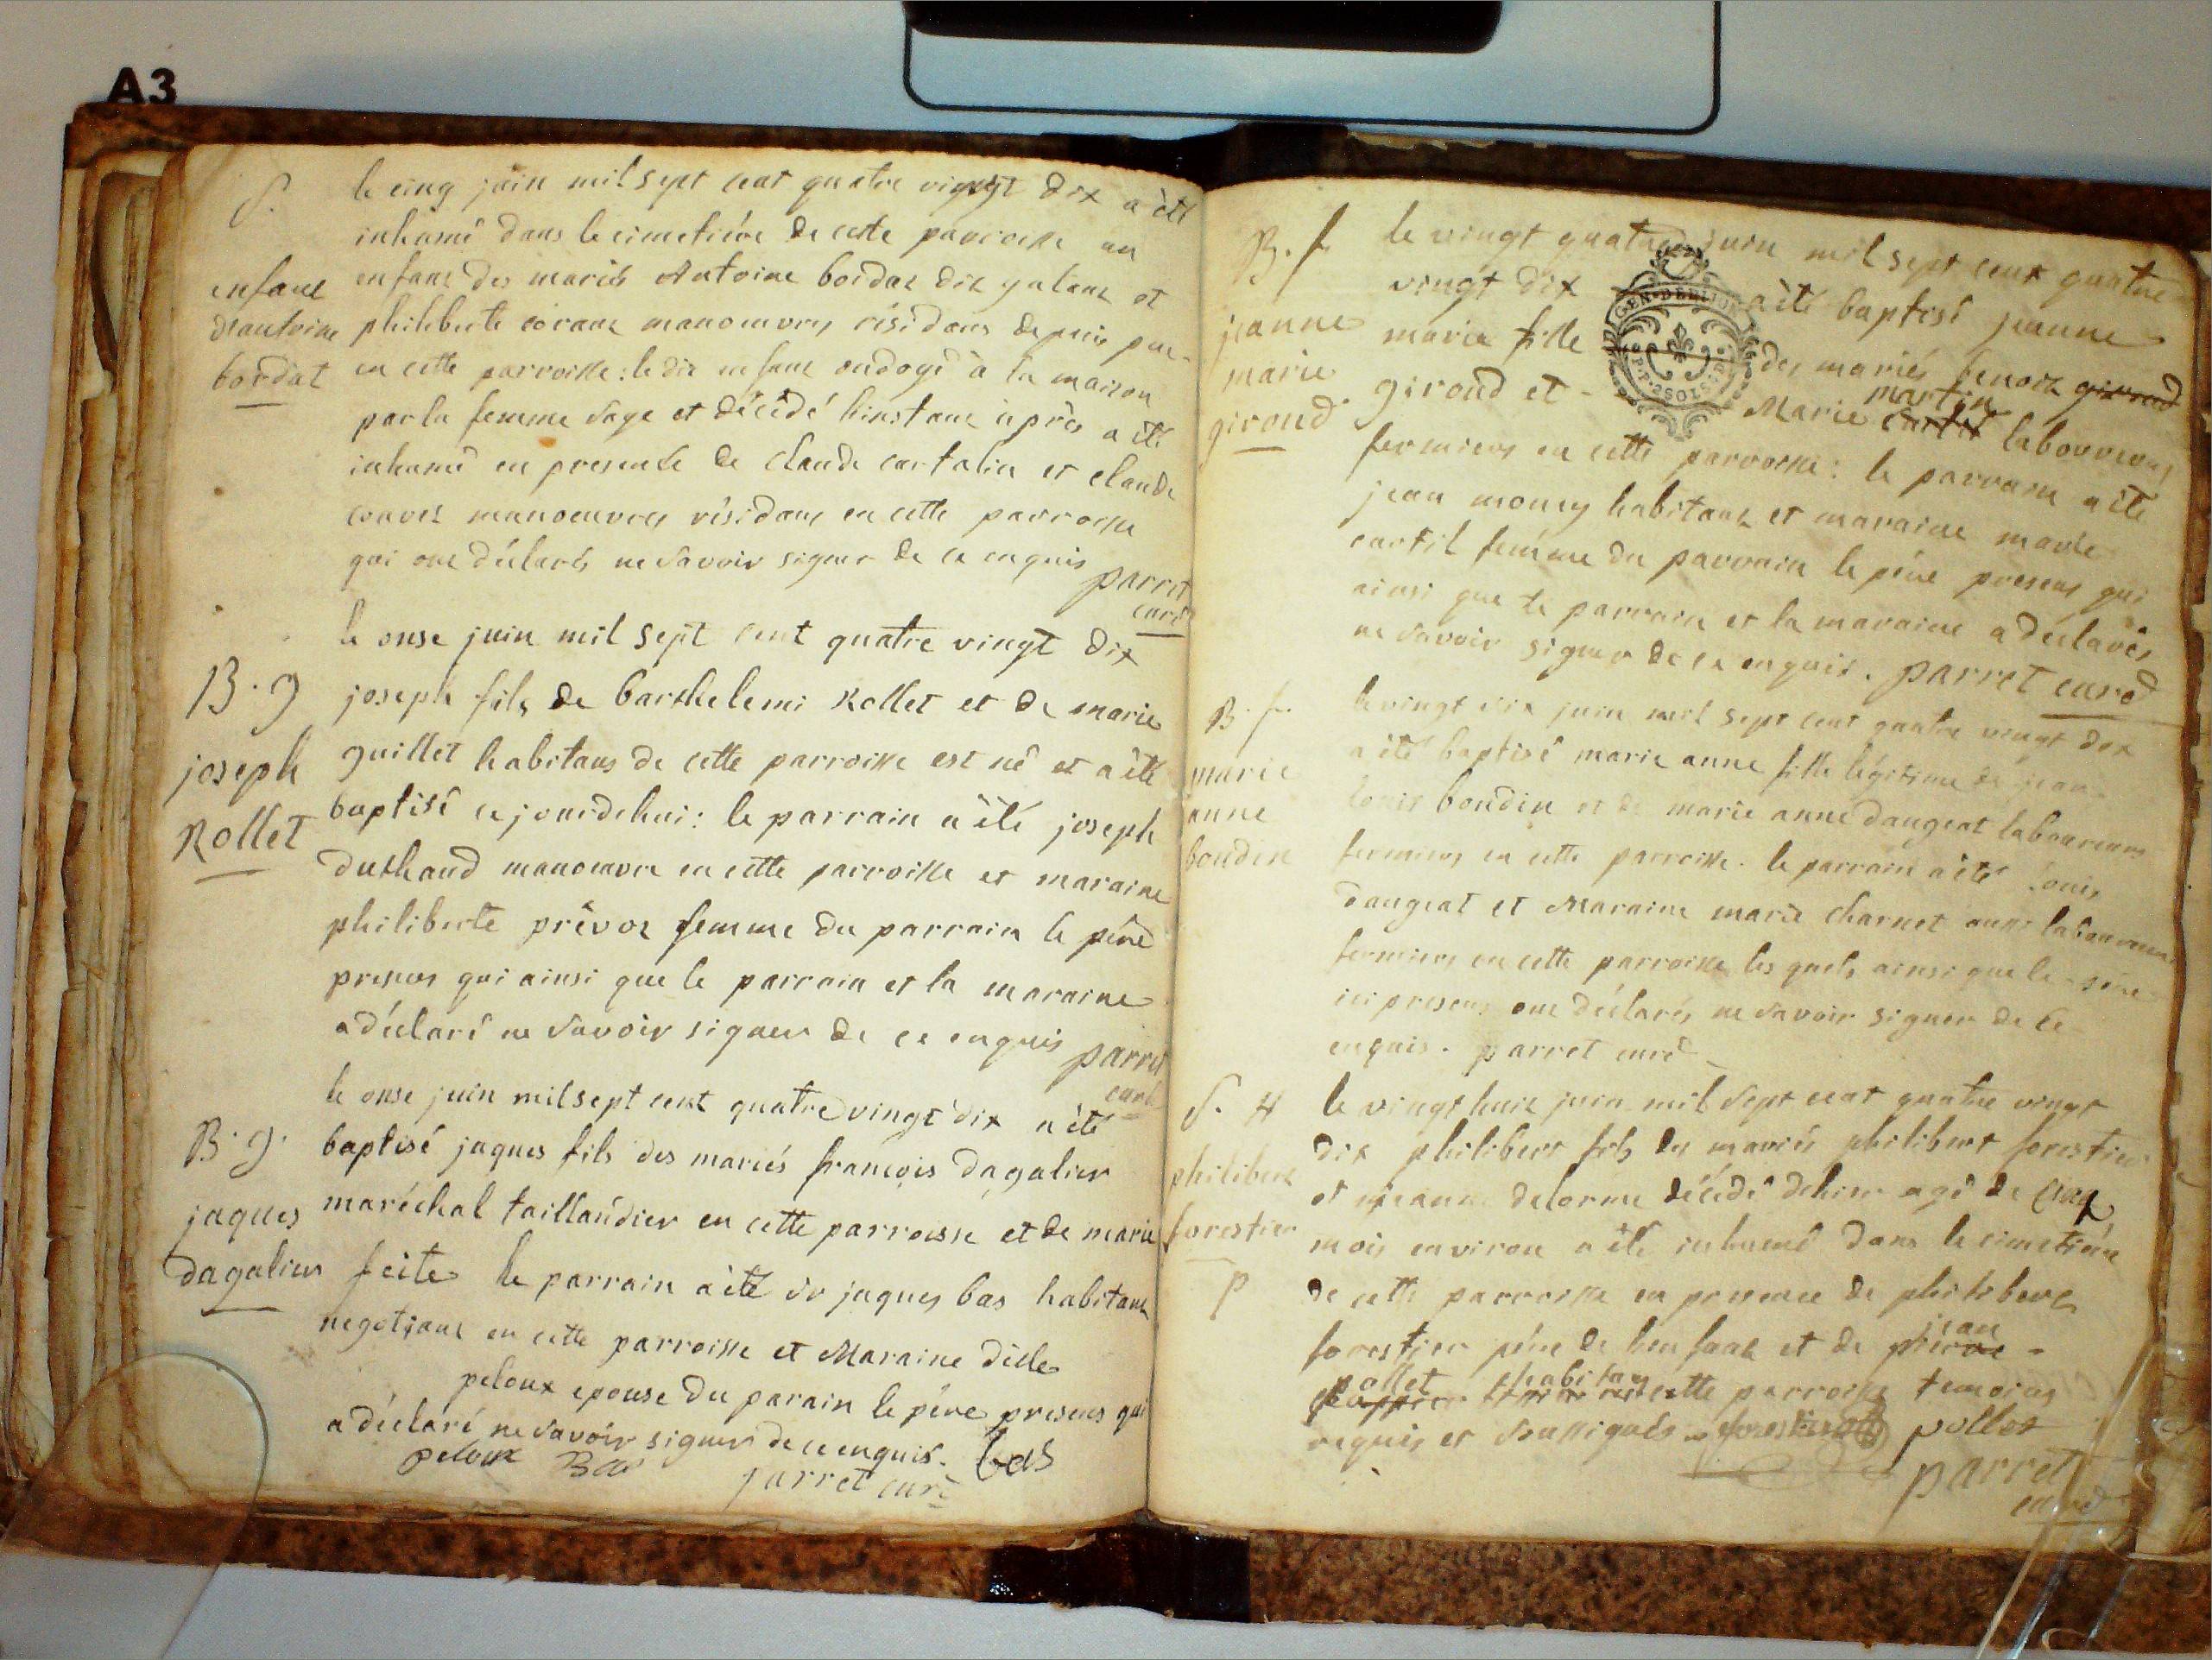 A3
S.
enfant
d'antoine
bordat
le cinq juin mil sept cent quatre vingt dix a été
inhumé dans le cimetiére de cette parroisse un
enfant des mariés Antoine bordat dit galant et
philiberte corant manoeuvres résidans depuis peu
en cette parroisse: le dit enfant ondoyé à la maison
par la femme sage et décédé l'instant après a été
inhumé en presence de claude cartalin et claude
manoeuvres résidans en cette parroisse
qui ont déclarés ne savoir signer de ce enquis parret
curé
B. g
joseph
Rollet
le onse juin mil sept cent quatre vingt dix
joseph fils de barthelemi Rollet et de marie
guillet habitans de cette parroisse est né et a été
baptisé cejourdehui: le parrain a été joseph
duthaud manoeuvre en cette parroisse et maraine
philiberte prévot femme du parrain le pére
presens qui ainsi que le parrain et la maraine
a déclaré ne savoir signer de ce enquis parret
curé
B. g.
jaques
dagalier
le onse juin mil sept cent quatre vingt dix a été
baptisé jaques fils des mariés françois dagalier
maréchal taillandier en cette parroisse et de marie
feite le parrain a été sr jaques bas habitant
negotiant en cette parroisse et Maraine dlle
peloux epouse du parain le pére presens qui
a déclaré ne savoir signer de ce enquis. bas
peloux Bas parret curé
B. f
jeanne
marie
giroud
le vingt quatre juin mil sept cent quatre
vingt dix a été baptisé jeanne
marie fille des mariés benoit giroud
GEN. DE DIJON
2 SOLS
martin
giroud et - Marie cartil laboureurs
fermiers en cette parroisse: le parrain a été
jean mouey habitant et maraine marie
cartil femme du parrain le pére presens qui
ainsi que le parrain et la maraine a déclarés
ne savoir signer de ce enquis. parret curé
B. f.
marie
anne
boudin
le vingt six juin mil sept cent quatre vingt dix
a été baptisé marie anne fille légitime de jean
louis boudin et de marie anne daugeat laboureurs
fermiers en cette parroisse. le parrain a été louis
daugeat et Maraine marie charnet aussi laboureurs
fermiers en cette parroisse les quels ainsi que le pére
ici presens ont déclarés ne savoir signer de ce
enquis. parret curé
S. H
philibert
forestier
P
le vingt huit juin mil sept cent quatre vingt
dix philibert fils des mariés philibert forestier
et jeanne delorme décédé d'hier agé de cinq
mois environ a été inhumé dans le cimetiére
de cette parroisse en presence de philibert
jean
forestier pére de l'enfant et de pierre -
pollet habitans
cette parroisse temoins
requis et soussignés forestier pollet
parret
curé